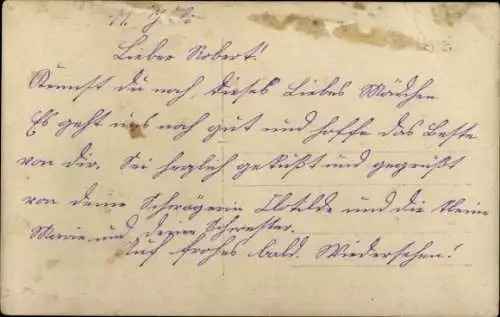 Lieber Robert!
Kennst du noch, dieses Liebes Mädchen
Es geht uns noch gut und hoffe das Beste
von dir. Sei herzlich geküßt und gegrüßt
von deine Schwägerin Clotilde und die kleine
Marie und deine Schwester.
Auf frohes bald. Wiedersehen!